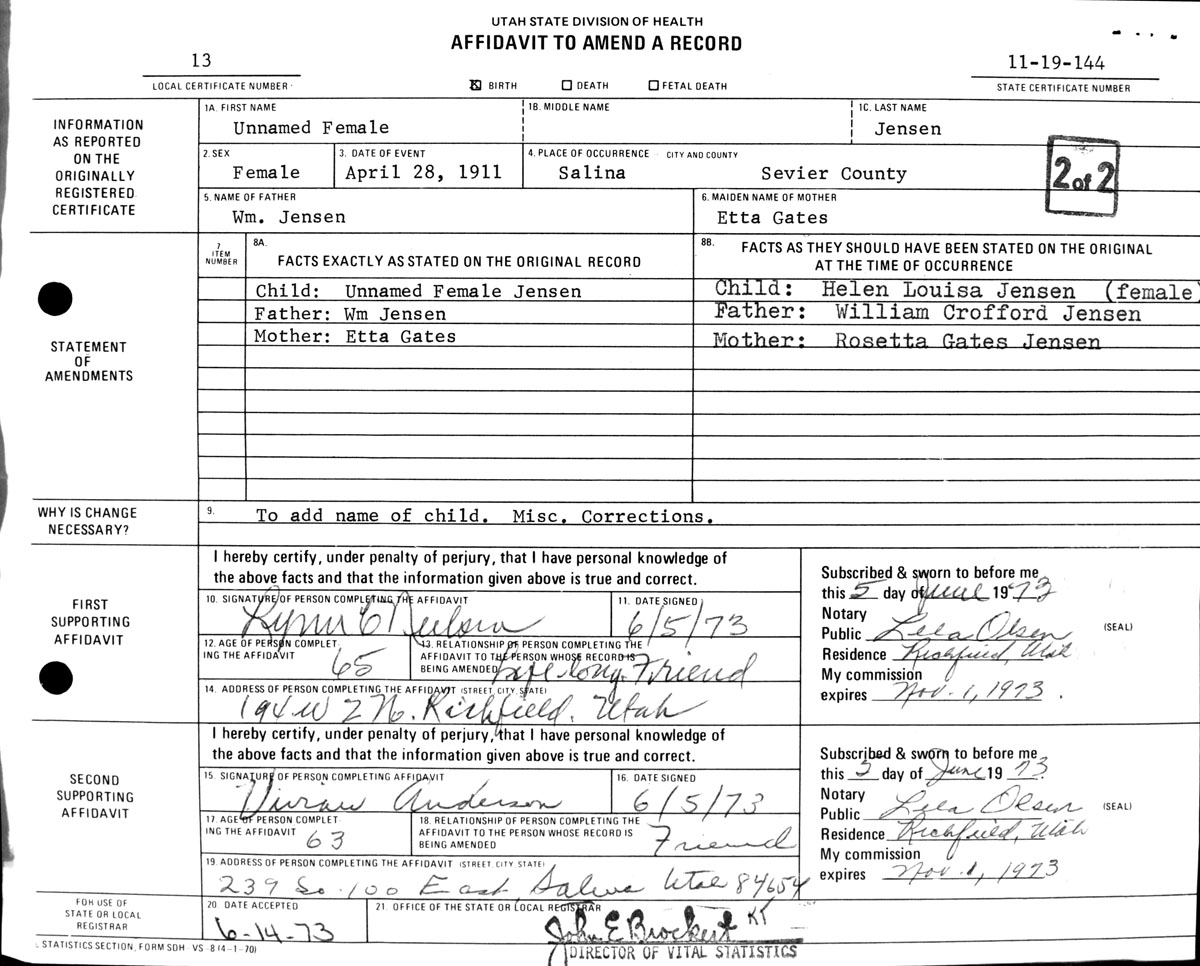 UTAH STATE DIVISION OF HEALTH
AFFIDAVIT TO AMEND A RECORD
13
LOCAL CERTIFICATE NUMBER
☒ BIRTH ☐ DEATH ☐ FETAL DEATH
11-19-144
STATE CERTIFICATE NUMBER
INFORMATION
AS REPORTED
ON THE
ORIGINALLY
REGISTERED
CERTIFICATE
1A. FIRST NAME 1B. MIDDLE NAME 1C. LAST NAME
Unnamed Female Jensen
2. SEX 3. DATE OF EVENT 4. PLACE OF OCCURRENCE - CITY AND COUNTY
Female April 28, 1911 Salina Sevier County
2 of 2
5. NAME OF FATHER 6. MAIDEN NAME OF MOTHER
Wm. Jensen Etta Gates
STATEMENT
OF
AMENDMENTS
7
ITEM
NUMBER
8A.
FACTS EXACTLY AS STATED ON THE ORIGINAL RECORD
8B. FACTS AS THEY SHOULD HAVE BEEN STATED ON THE ORIGINAL
AT THE TIME OF OCCURRENCE
Child: Unnamed Female Jensen Child: Helen Louisa Jensen (female)
Father: Wm Jensen Father: William Crofford Jensen
Mother: Etta Gates Mother: Rosetta Gates Jensen
WHY IS CHANGE
NECESSARY?
9. To add name of child. Misc. Corrections.
FIRST
SUPPORTING
AFFIDAVIT
I hereby certify, under penalty of perjury, that I have personal knowledge of
the above facts and that the information given above is true and correct.
10. SIGNATURE OF PERSON COMPLETING THE AFFIDAVIT 11. DATE SIGNED
Lynn C Neilson 6/5/73
12. AGE OF PERSON COMPLET-
ING THE AFFIDAVIT 65
13. RELATIONSHIP OF PERSON COMPLETING THE
AFFIDAVIT TO THE PERSON WHOSE RECORD IS
BEING AMENDED Life long Friend
14. ADDRESS OF PERSON COMPLETING THE AFFIDAVIT (STREET, CITY, STATE)
194 W 2 N. Richfield, Utah
Subscribed & sworn to before me
this 5 day of June 1973
Notary
Public Lela Olsen (SEAL)
Residence Richfield, Utah
My commission
expires Nov. 1, 1973.
SECOND
SUPPORTING
AFFIDAVIT
I hereby certify, under penalty of perjury, that I have personal knowledge of
the above facts and that the information given above is true and correct.
15. SIGNATURE OF PERSON COMPLETING AFFIDAVIT 16. DATE SIGNED
Vivian Anderson 6/5/73
17. AGE OF PERSON COMPLET-
ING THE AFFIDAVIT 63
18. RELATIONSHIP OF PERSON COMPLETING THE
AFFIDAVIT TO THE PERSON WHOSE RECORD IS
BEING AMENDED Friend
19. ADDRESS OF PERSON COMPLETING THE AFFIDAVIT (STREET, CITY, STATE)
239 So. 100 East, Salina Utah 84654
Subscribed & sworn to before me
this 5 day of June 1973
Notary
Public Lela Olsen (SEAL)
Residence Richfield, Utah
My commission
expires Nov. 1, 1973
FOR USE OF
STATE OR LOCAL
REGISTRAR
20. DATE ACCEPTED 21. OFFICE OF THE STATE OR LOCAL REGISTRAR
6-14-73 John E Brockert KT
DIRECTOR OF VITAL STATISTICS
STATISTICS SECTION, FORM SDH - VS - 8 (4-1-70)